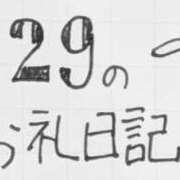 29の
礼日記